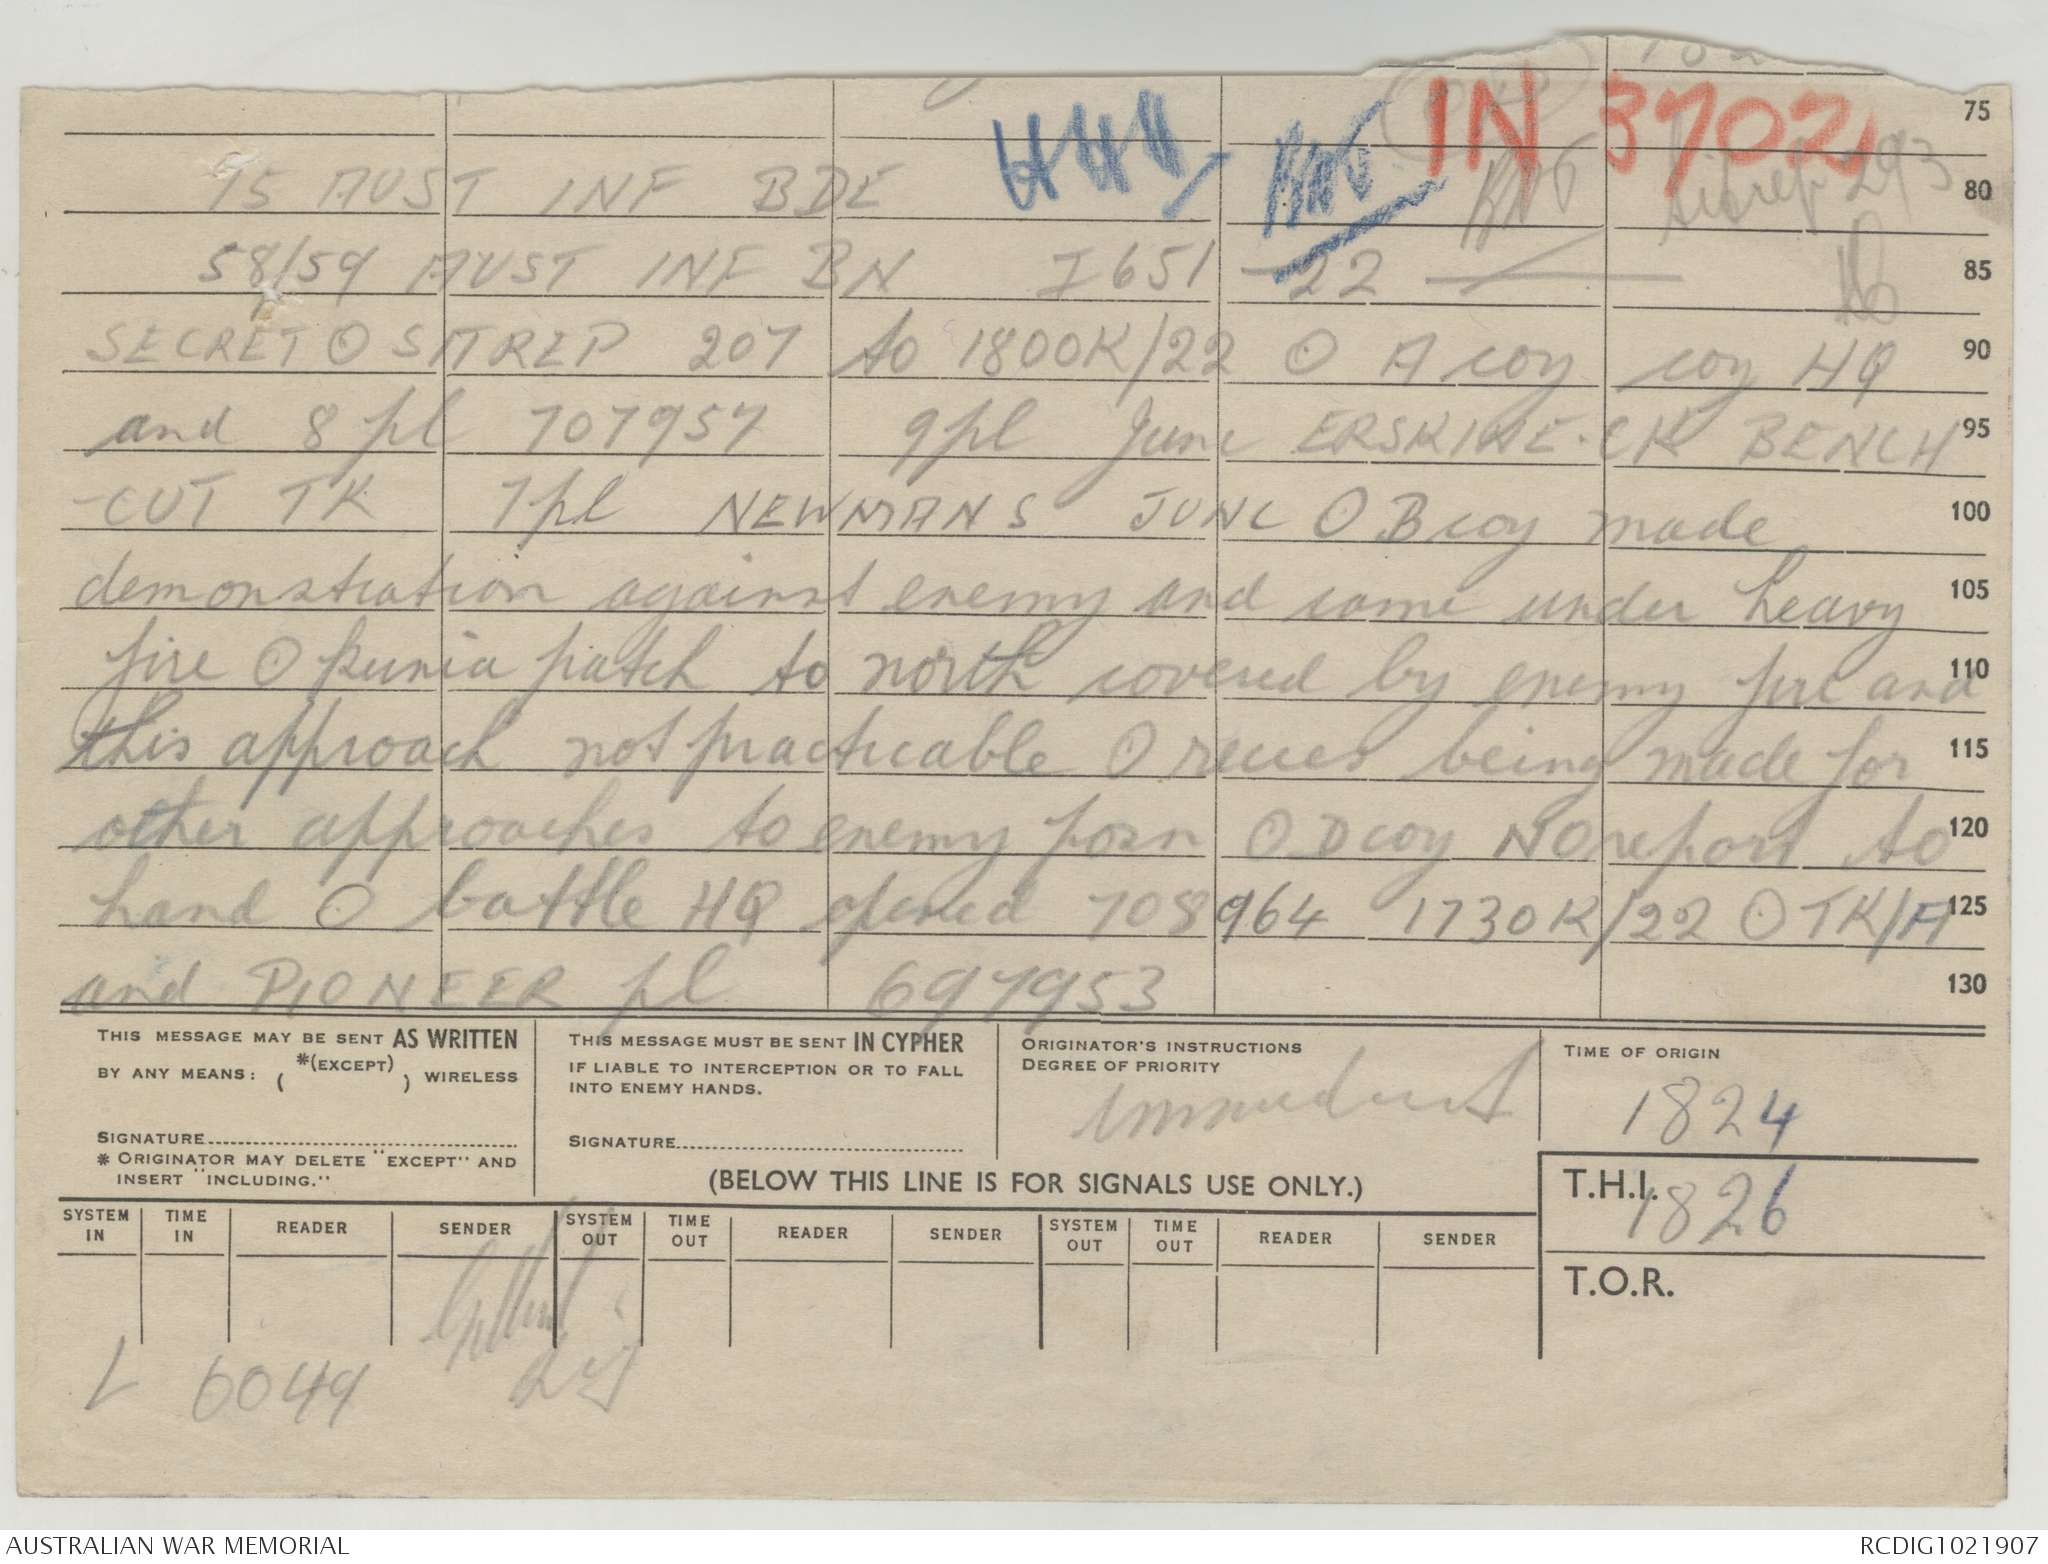 IN 3702
75
15 AUST INF BDE
Sitrep 293
80
58/59 AUST INF BN I651 - 22
85
SECRET O SITREP 207 to 1800K/22 O A coy coy HQ
90
and 8 pl 707957 9 pl Junc ERSKINE-CK BENCH
95
-CUT TK 7 pl NEWMANS JUNC O B coy made
100
demonstration against enemy and came under heavy
105
fire O kunia patch to north covered by enemy fire and
110
this approach not practicable O recces being made for
115
other approaches to enemy posn O D coy NO report to
120
hand O battle HQ opened 708964 1730K/22 O TK/A
125
and PIONEER pl 697953
130
THIS MESSAGE MAY BE SENT AS WRITTEN
BY ANY MEANS: ( *(EXCEPT) ) WIRELESS
SIGNATURE
* ORIGINATOR MAY DELETE "EXCEPT" AND
INSERT "INCLUDING."
THIS MESSAGE MUST BE SENT IN CYPHER
IF LIABLE TO INTERCEPTION OR TO FALL
INTO ENEMY HANDS.
SIGNATURE
ORIGINATOR'S INSTRUCTIONS
DEGREE OF PRIORITY
TIME OF ORIGIN
1824
(BELOW THIS LINE IS FOR SIGNALS USE ONLY.)
T.H.I.
1826
T.O.R.
SYSTEM IN TIME IN READER SENDER SYSTEM OUT TIME OUT READER SENDER SYSTEM OUT TIME OUT READER SENDER
L 6049
AUSTRALIAN WAR MEMORIAL
RCDIG1021907